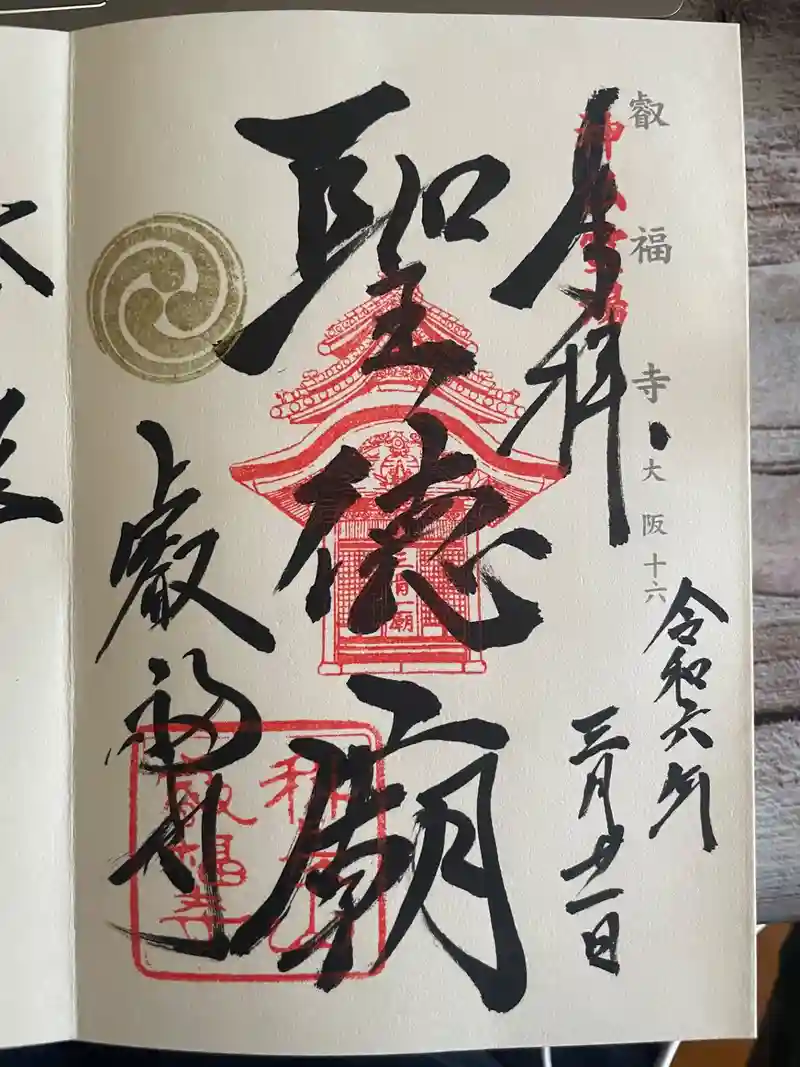 叡福寺 大阪十六
令和六年
三月廿一日
奉拝
神仏霊場
聖徳廟
三骨一廟
叡福寺
叡福寺